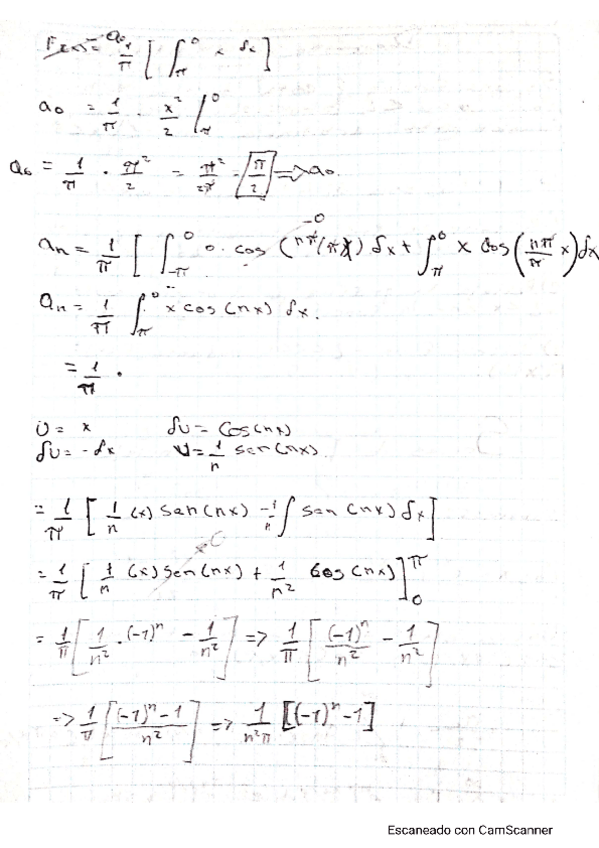 F(x) = a₀ 1/π [ ∫_π^0 x dx ]
a₀ = 1/π · x²/2 |_π^0
a₀ = 1/π · π²/2 = π²/2π = π/2 => a₀.
aₙ = 1/π [ ∫_-π^0 0 · cos (nπ/(π)x) dx + ∫_π^0 x cos (nπ/π x) dx
aₙ = 1/π ∫_π^0 x cos (nx) dx.
= 1/π ·
U = x dv = Cos(nx)
du = -dx V = 1/n sen(nx).
= 1/π [ 1/n (x) san(nx) - 1/n ∫ sen (nx) dx ]
= 1/π [ 1/n (x) sen(nx) + 1/n² cos (nx) ]_0^π
= 1/π [ 1/n² · (-1)ⁿ - 1/n² ] => 1/π [ (-1)ⁿ/n² - 1/n² ]
=> 1/π [ (-1)ⁿ - 1 / n² ] => 1/n²π [(-1)ⁿ - 1]
Escaneado con CamScanner